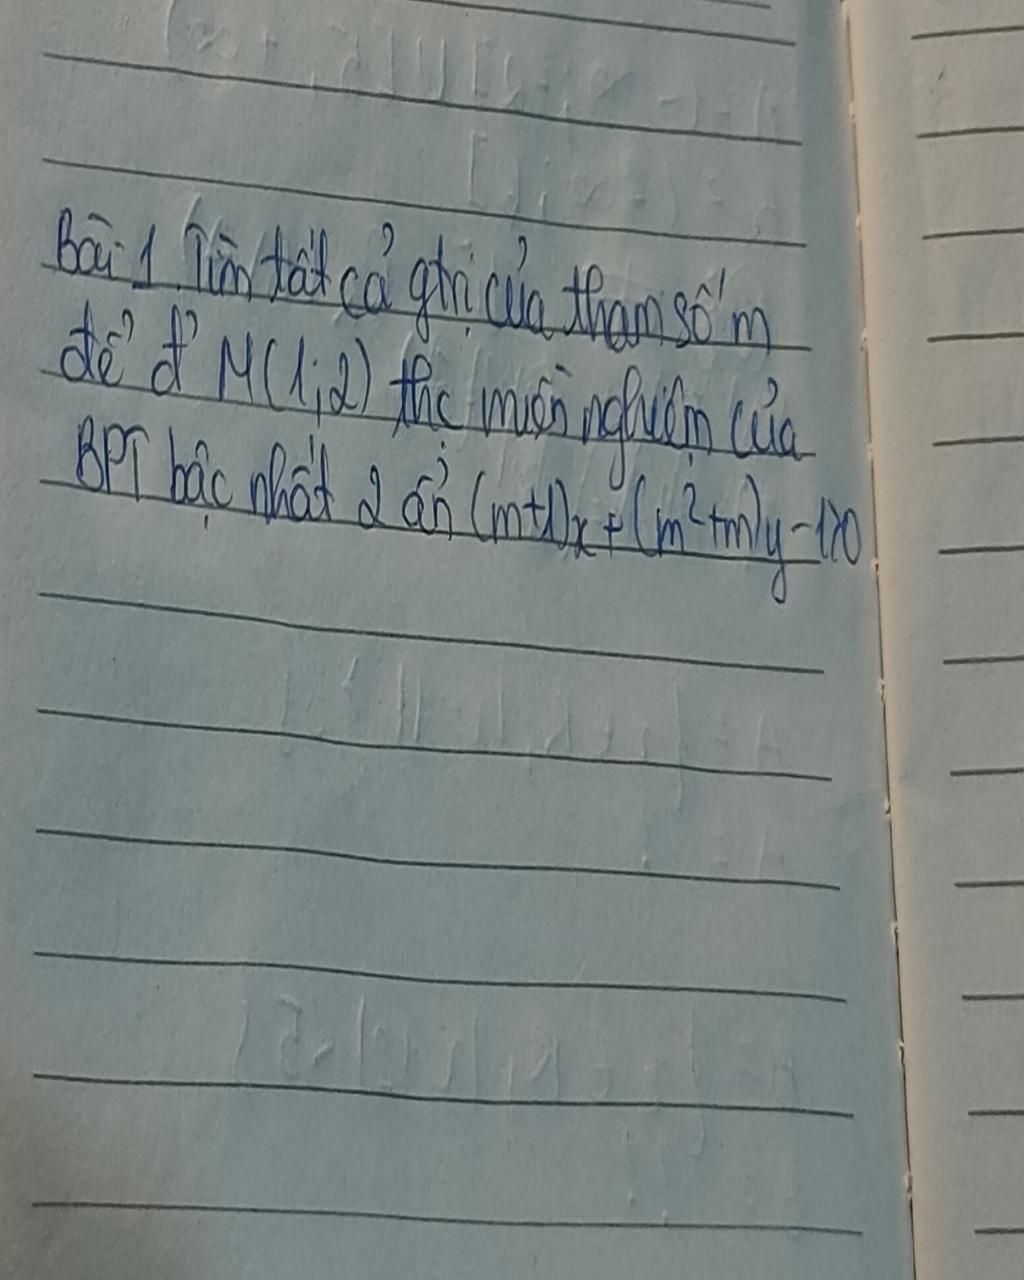 Bài 1 Tìm tất cả gtrị của tham số m
để đ' M(1;2) thc miền nghiệm của
BPT bậc nhất 2 ẩn (m+1)x + (m²+m)y - 1>0